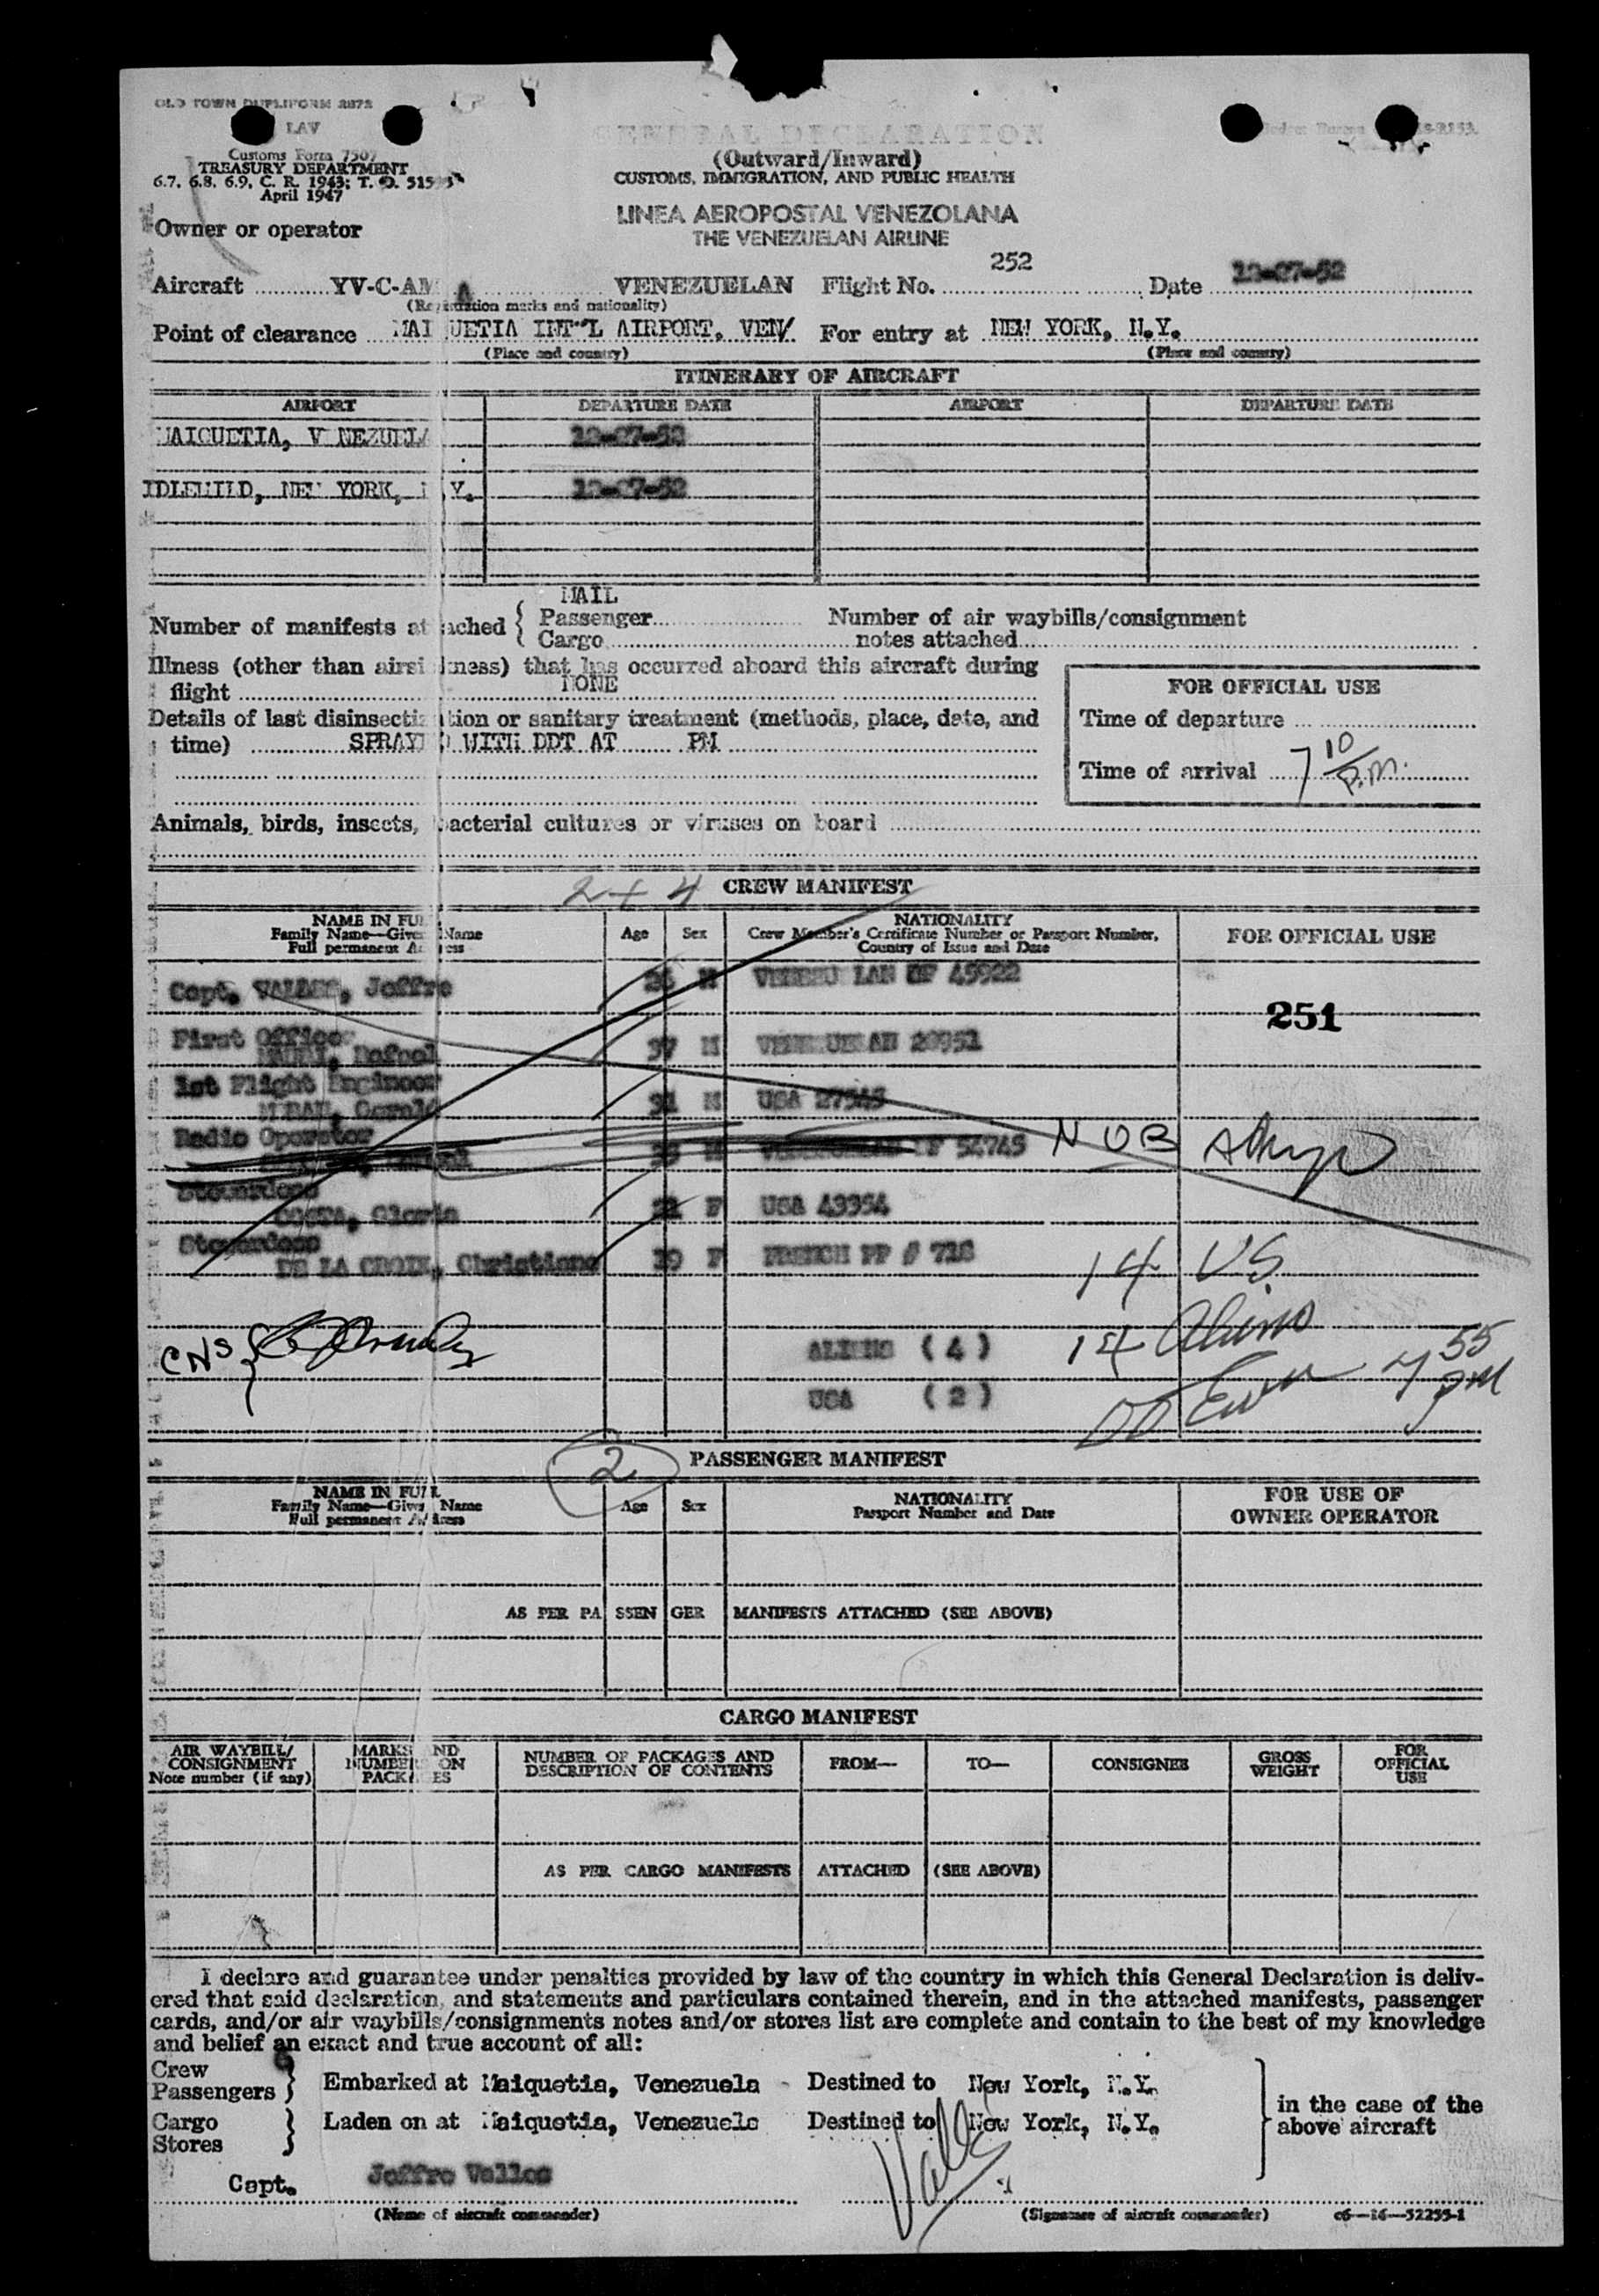 OLD TOWN DUPLIFORM 2872
LAV
Customs Form 7507
TREASURY DEPARTMENT
6.7, 6.8, 6.9, C. R. 1943; T. D.
April 1947
GENERAL DECLARATION
(Outward/Inward)
CUSTOMS, IMMIGRATION, AND PUBLIC HEALTH
LINEA AEROPOSTAL VENEZOLANA
THE VENEZUELAN AIRLINE
Owner or operator
252
Aircraft YV-C-AM A VENEZUELAN Flight No. Date 12-27-52
(Registration marks and nationality)
Point of clearance MAIQUETIA INT'L AIRPORT, VEN. For entry at NEW YORK, N.Y.
(Place and country) (Place and country)
ITINERARY OF AIRCRAFT
AIRPORT DEPARTURE DATE AIRPORT DEPARTURE DATE
MAIQUETIA, VENEZUELA 12-27-52
IDLEWILD, NEW YORK, N.Y. 12-27-52
MAIL
Number of manifests attached { Passenger Number of air waybills/consignment
Cargo notes attached
Illness (other than airsickness) that has occurred aboard this aircraft during
flight NONE
Details of last disinsectization or sanitary treatment (methods, place, date, and
time) SPRAYED WITH DDT AT PM
FOR OFFICIAL USE
Time of departure
Time of arrival 7 10 P.M.
Animals, birds, insects, bacterial cultures or viruses on board
2 + 4 CREW MANIFEST
NAME IN FULL
Family Name—Given Name
Full permanent Address
Age Sex
NATIONALITY
Crew Member's Certificate Number or Passport Number,
Country of Issue and Date
FOR OFFICIAL USE
Capt. VALLES, Joffre M VENEZUELAN OF 45922
251
First Officer
37 M VENEZUELAN 20951
1st Flight Engineer
Gerald 31 M USA 27545
Radio Operator
54745 NOB
Stewardess
COSTA, Gloria F USA 49354
Stewardess
DE LA CROIX, Christiane F FRENCH PP # 718
14 U.S.
CNS {
ALIENS (4) 14 Aliens
USA (2) 7 55 PM
2 PASSENGER MANIFEST
NAME IN FULL
Family Name—Given Name
Full permanent Address
Age Sex
NATIONALITY
Passport Number and Date
FOR USE OF
OWNER OPERATOR
AS PER PASSENGER MANIFESTS ATTACHED (SEE ABOVE)
CARGO MANIFEST
AIR WAYBILL/
CONSIGNMENT
Note number (if any)
MARKS AND
NUMBERS ON
PACKAGES
NUMBER OF PACKAGES AND
DESCRIPTION OF CONTENTS
FROM— TO— CONSIGNEE
GROSS
WEIGHT
FOR
OFFICIAL
USE
AS PER CARGO MANIFESTS ATTACHED (SEE ABOVE)
I declare and guarantee under penalties provided by law of the country in which this General Declaration is deliv-
ered that said declaration, and statements and particulars contained therein, and in the attached manifests, passenger
cards, and/or air waybills/consignments notes and/or stores list are complete and contain to the best of my knowledge
and belief an exact and true account of all:
Crew
Passengers } Embarked at Maiquetia, Venezuela - Destined to New York, N.Y.
Cargo
Stores } Laden on at Maiquetia, Venezuela Destined to New York, N.Y.
} in the case of the
above aircraft
Capt. Joffre Valles
(Name of aircraft commander) (Signature of aircraft commander) c6—16—52255-1